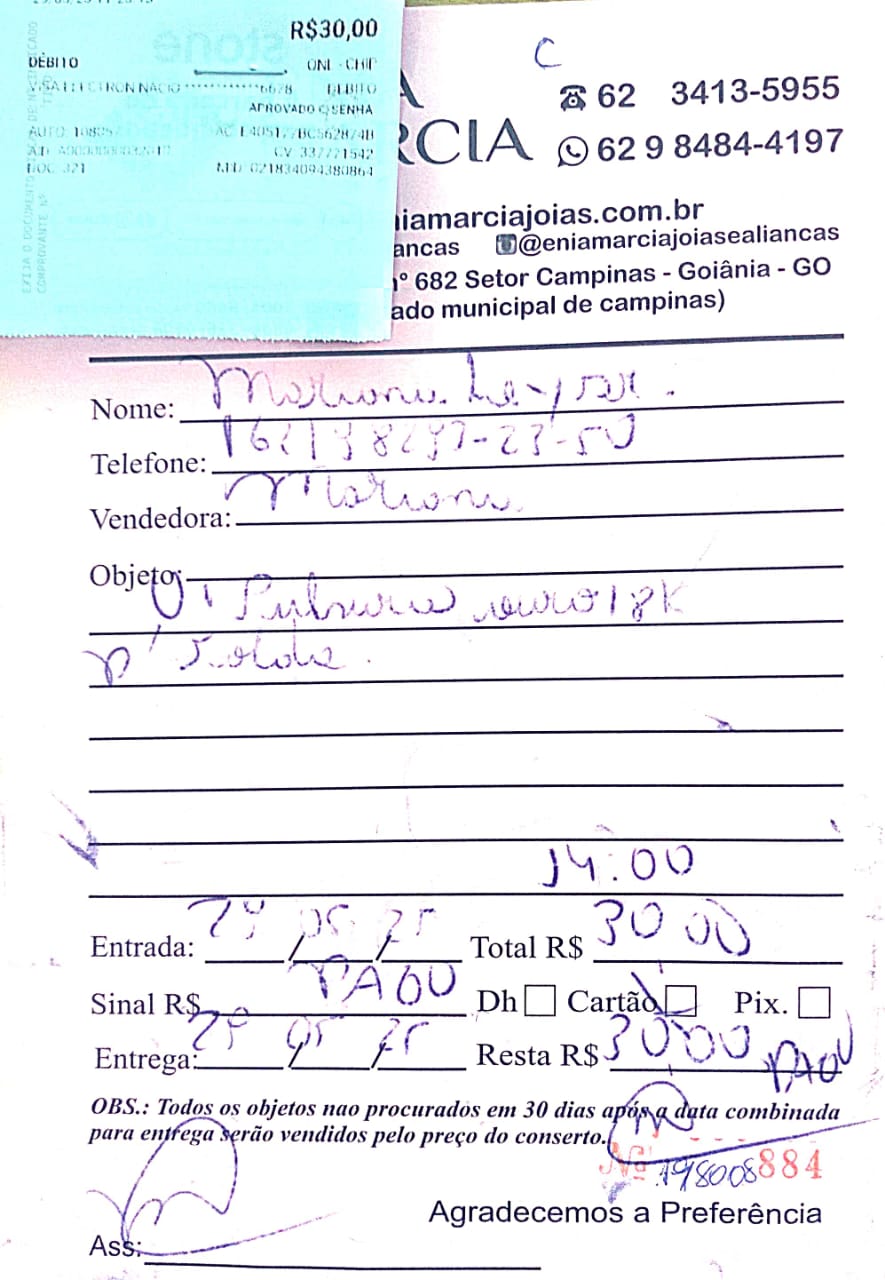 R$30,00
DÉBITO ONL - CHIP
VISA ELECTRON NACIO ************6678 DEBITO
APROVADO C/SENHA
AUTO: 10825
CV: 337771542
DOC: 321 MID: 021834094380864
C
A
62 3413-5955
RCIA 62 9 8484-4197
niamarciajoias.com.br
ancas @eniamarciajoiasealiancas
nº 682 Setor Campinas - Goiânia - GO
ado municipal de campinas)
Nome:
Telefone:
Vendedora:
Objeto:
ouro 18K
p/ Solda.
14:00
Entrada: 29/05/25 Total R$ 30 00
Sinal R$ PAGO Dh Cartão Pix.
Entrega: 29/05/25 Resta R$ 30 00 PAGO
OBS.: Todos os objetos nao procurados em 30 dias após a data combinada
para entrega serão vendidos pelo preço do conserto.
Nº 198008884
Agradecemos a Preferência
Ass: